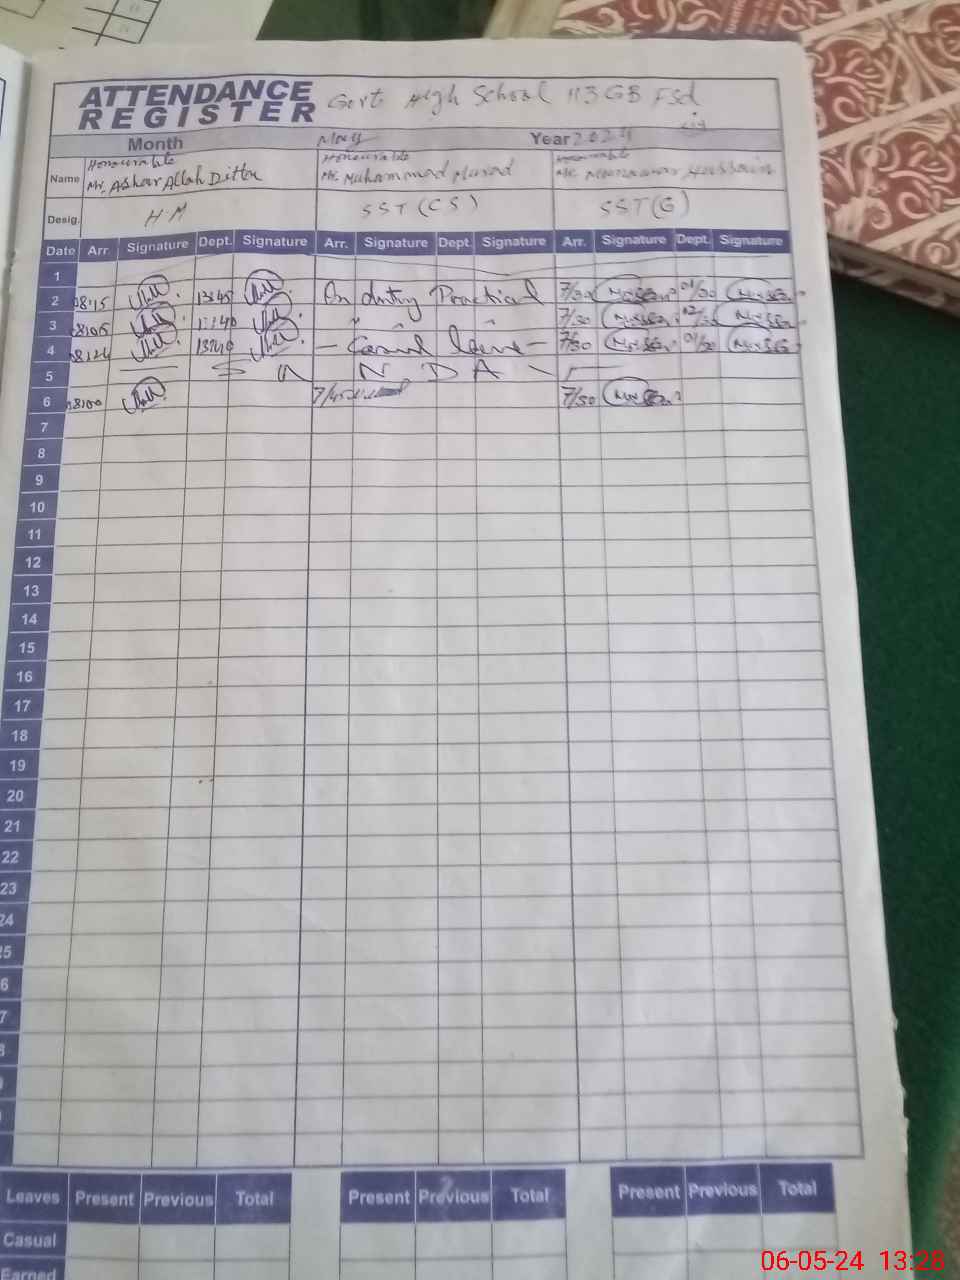 ATTENDANCE REGISTER Govt High School 113 GB Fsd
Month May Year 2024
Name Honourable Mr. Ashar Allah Ditta Honourable Mr. Muhammad Honourable Mr.
Desig. H.M SST (CS) SST(G)
Date Arr. Signature Dept. Signature Arr. Signature Dept. Signature Arr. Signature Dept. Signature
1
2 08:15 13:45 On duty Practical 7/30 01/30
3 08:05 " " " 7/30 12/30
4 - Casual leave - 7/30 01/30
5 S U N D A
6 08:00 7/45 7/30
7
8
9
10
11
12
13
14
15
16
17
18
19
20
21
22
23
24
25
6
7
8
Leaves Present Previous Total Present Previous Total Present Previous Total
Casual
Earned
06-05-24 13:28